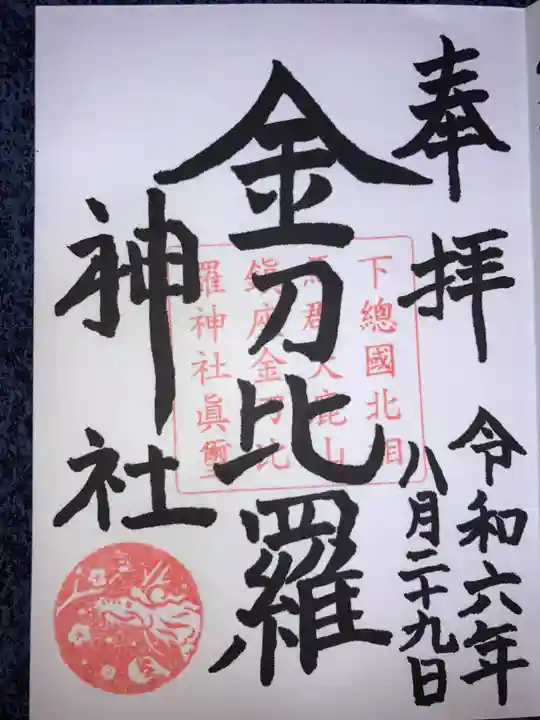 奉拝
令和六年
八月二十九日
金刀比羅
神社
下總國北相
馬郡大鹿山
鎮座金刀比
羅神社眞璽